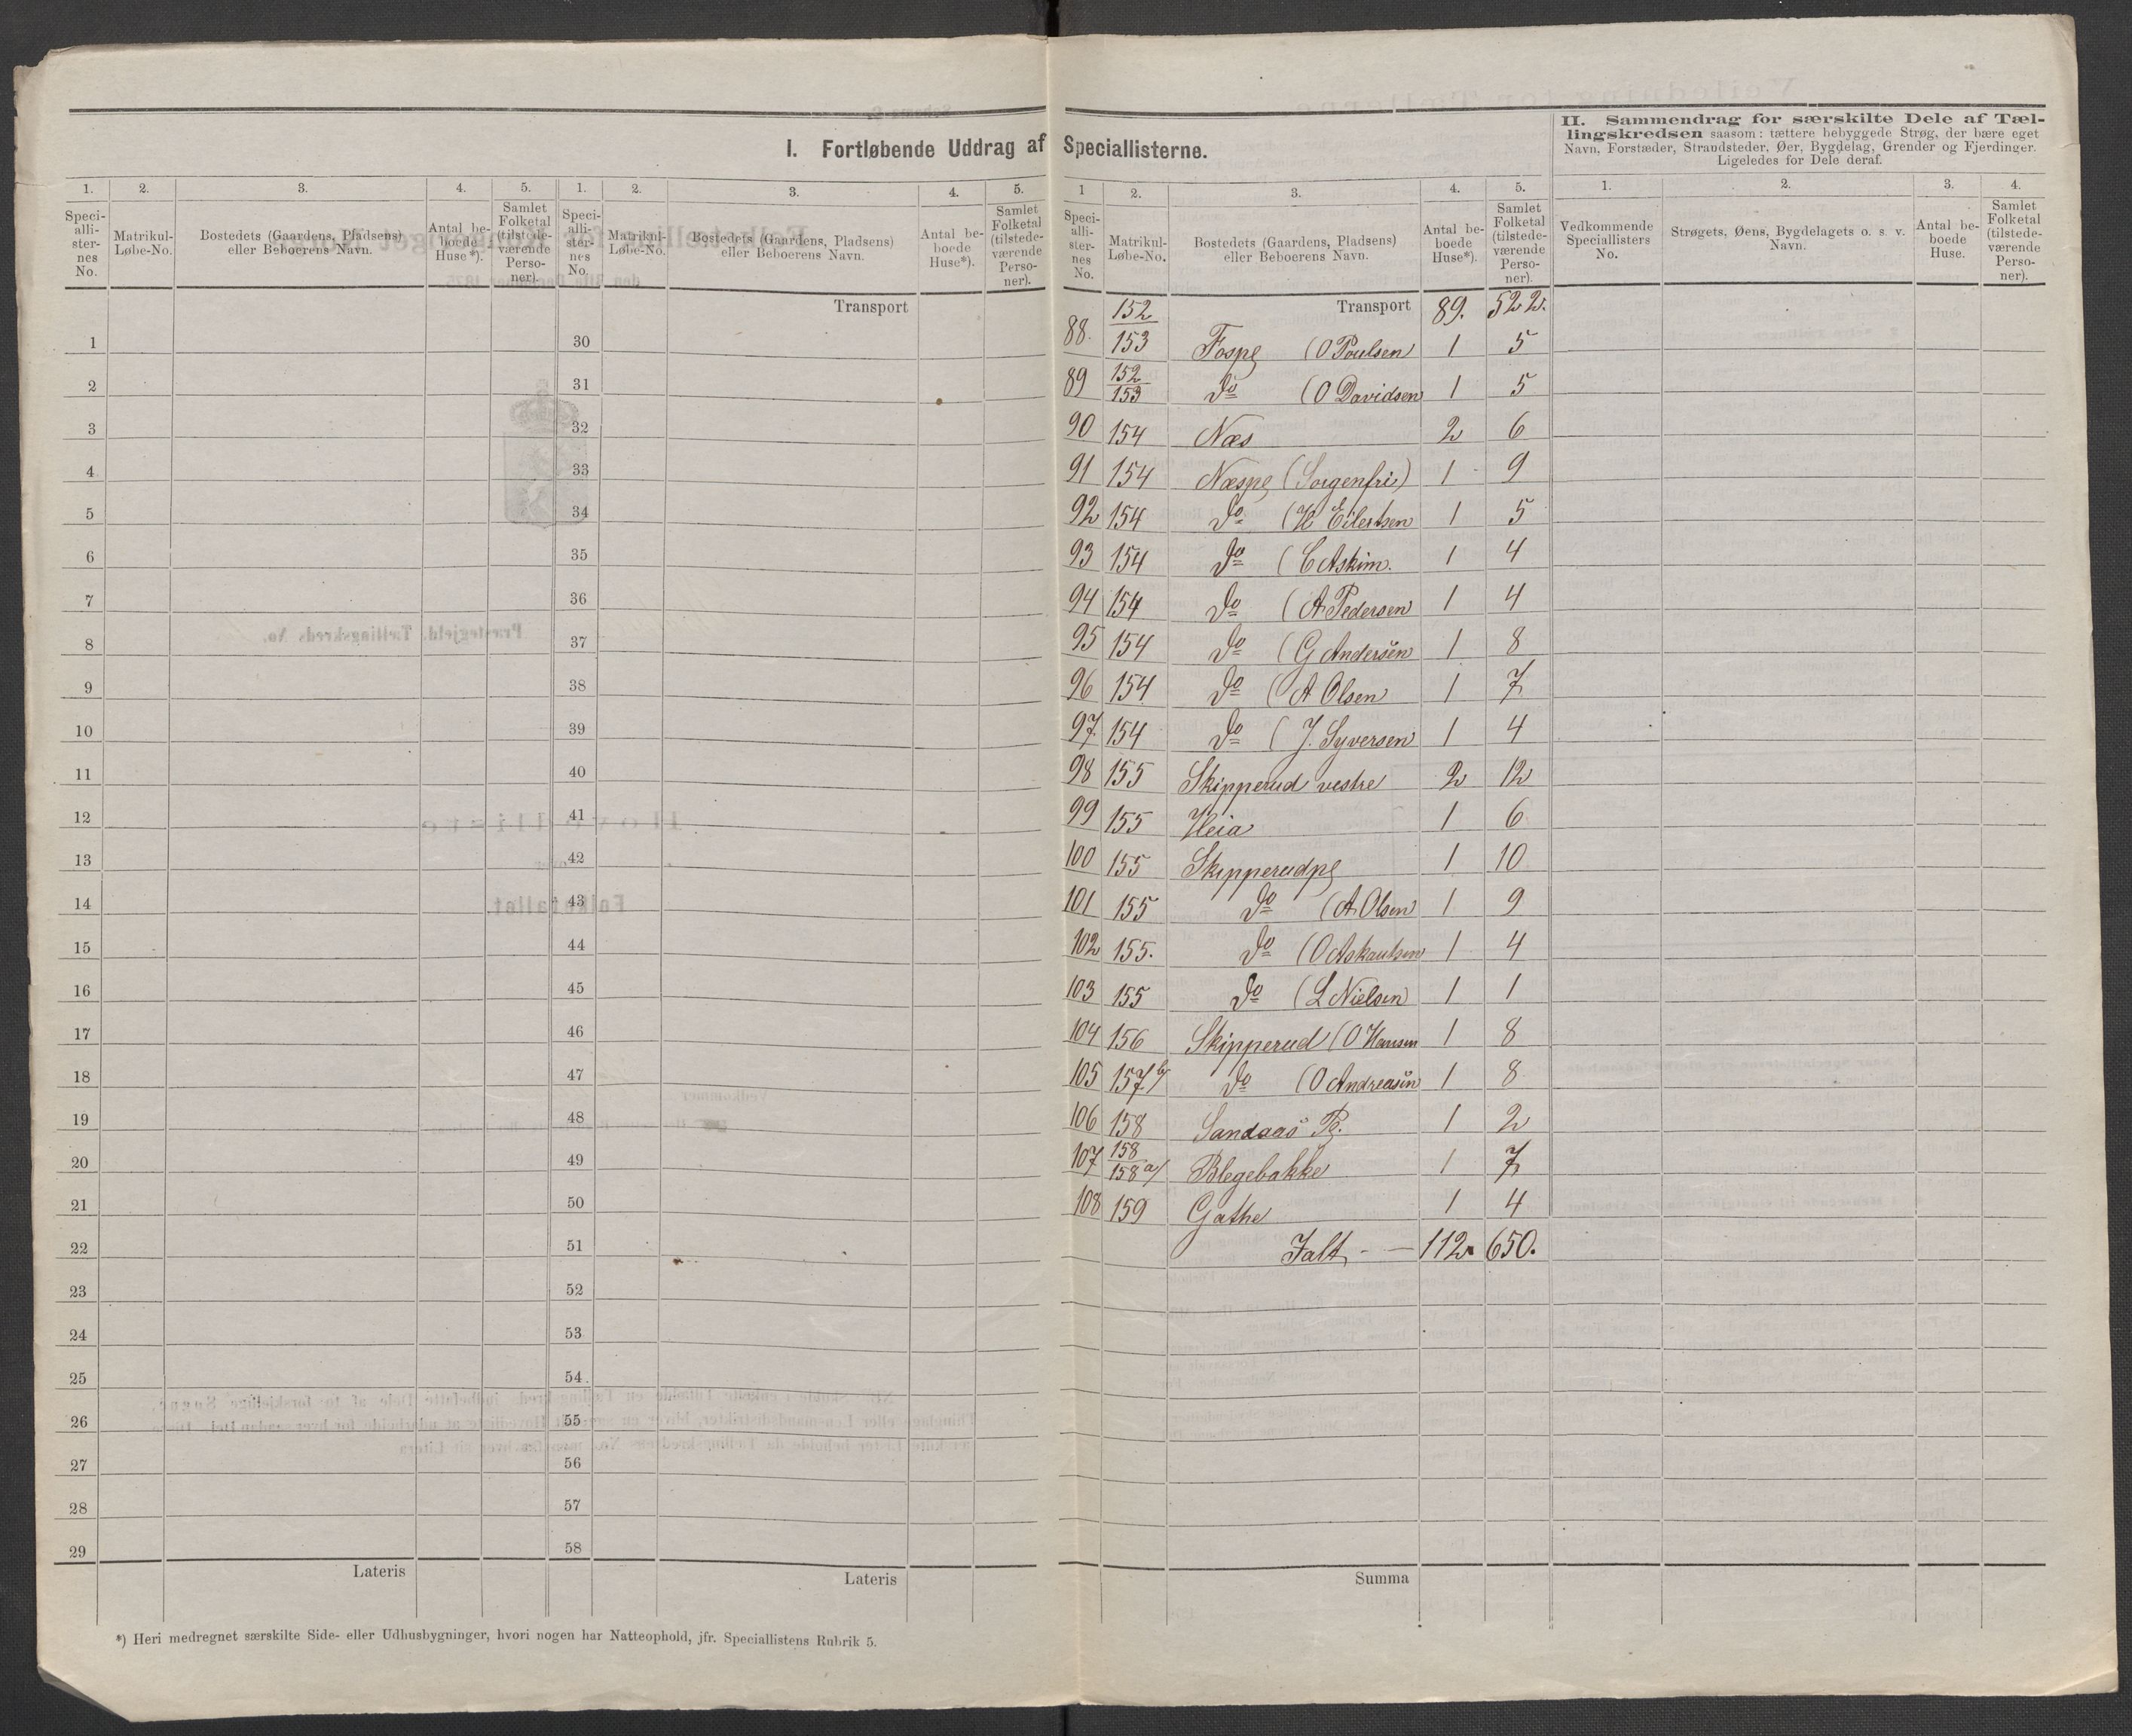 I. Fortløbende Uddrag af Speciallisterne.
II. Sammendrag for særskilte Dele af Tæl-
lingskredsen saasom: tættere bebyggede Strøg, der bære eget
Navn, Forstæder, Strandsteder, Øer, Bygdelag, Grender og Fjerdinger.
Ligeledes for Dele deraf.
1. 2. 3. 4. 5. 1. 2. 3. 4. 5. 1 2. 3. 4. 5. 1. 2. 3. 4.
Speci-alli-ster-nes No. Matrikul-Løbe-No. Bostedets (Gaardens, Pladsens) eller Beboerens Navn. Antal be-boede Huse*). Samlet Folketal (tilstede-værende Perso-ner).
Speci-alli-ster-nes No. Matrikul-Løbe-No. Bostedets (Gaardens, Pladsens) eller Beboerens Navn. Antal be-boede Huse*). Samlet Folketal (tilstede-værende Perso-ner).
Speci-alli-ster-nes No. Matrikul-Løbe-No. Bostedets (Gaardens, Pladsens) eller Beboerens Navn. Antal be-boede Huse*). Samlet Folketal (tilstede-værende Perso-ner).
Vedkommende Speciallisters No. Strøgets, Øens, Bygdelagets o. s. v. Navn. Antal be-boede Huse. Samlet Folketal (tilstede-værende Perso-ner).
Transport
1 30
2 31
3 32
4 33
5 34
6 35
7 36
8 37
9 38
10 39
11 40
12 41
13 42
14 43
15 44
16 45
17 46
18 47
19 48
20 49
21 50
22 51
23 52
24 53
25 54
26 55
27 56
28 57
29 58
Lateris Lateris
*) Heri medregnet særskilte Side- eller Udhusbygninger, hvori nogen har Natteophold, jfr. Speciallistens Rubrik 5.
Transport 89. 522.
88. 152/153 Fospg (O Poulsen) 1 5
89 152/153 do (O Davidsen 1 5
90 154 Næs 2 6
91 154 Næspg (Sorgenfri) 1 9
92 154 do (H Eilertsen 1 5
93 154 do (C Askim. 1 4
94 154 do (A Pedersen 1 4
95 154 do (G Andersen 1 8
96 154 do (A Olsen 1 7
97 154 do (J. Syversen 1 4
98 155 Skipperud vestre 2 12
99 155 Heia 1 6
100 155 Skipperudpg 1 10
101 155 do (A Olsen 1 9
102 155. do (O Askautsen 1 4
103 155 do (L Nielsen 1 1
104 156 Skipperud (O Hansen 1 8
105 157 b/ do (O Andreasen 1 8
106 158 Sandaas Pg. 1 2
107 158/158 a/ Blegebakke 1 7
108 159 Gathe 1 4
Ialt - — 112. 650.
Summa